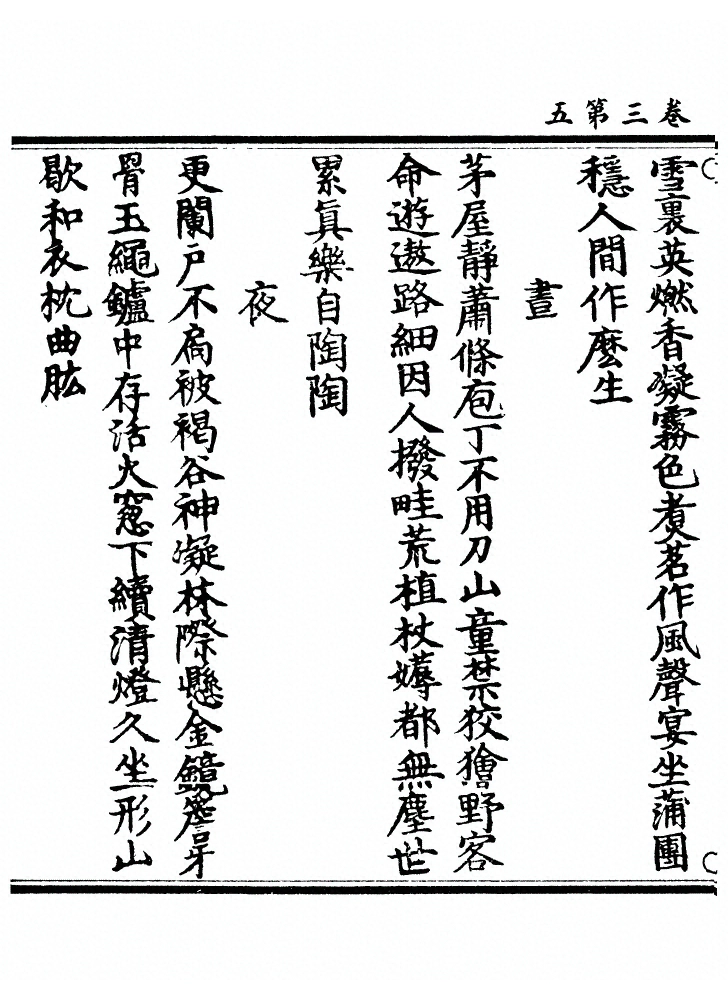 卷三第五
雪裏英燃香凝霧色煑茗作風聲宴坐蒲團
穩人間作麽生
晝
茅屋靜蕭條庖丁不用刀山童禁狡獪野客
命遊遨路細因人撥畦荒植杖薅都無塵世
累眞樂自陶陶
夜
更闌戶不扃被褐谷神凝林際懸金鏡簷牙
骨玉繩鑪中存活火窻下續清燈久坐形山
歇和衣枕曲肱